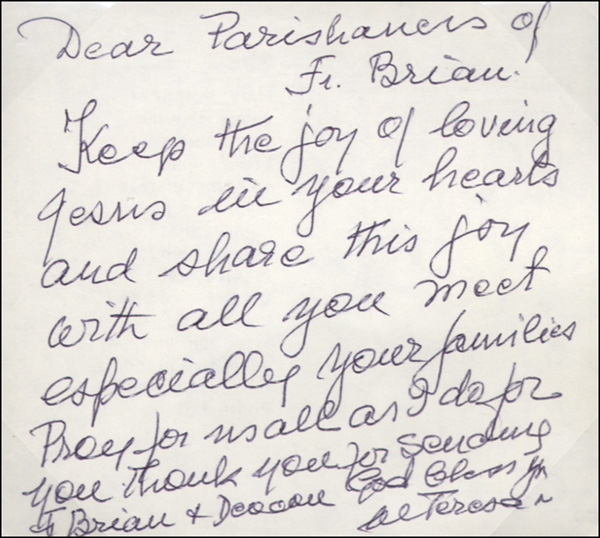 Dear Parishaners of
Fr. Brian.
Keep the joy of loving
Jesus in your hearts
and share this joy
with all you meet
especially your families
Pray for us all as I do for
you Thank you for Sending
Fr Brian + Deacon God Bless you
M Teresa